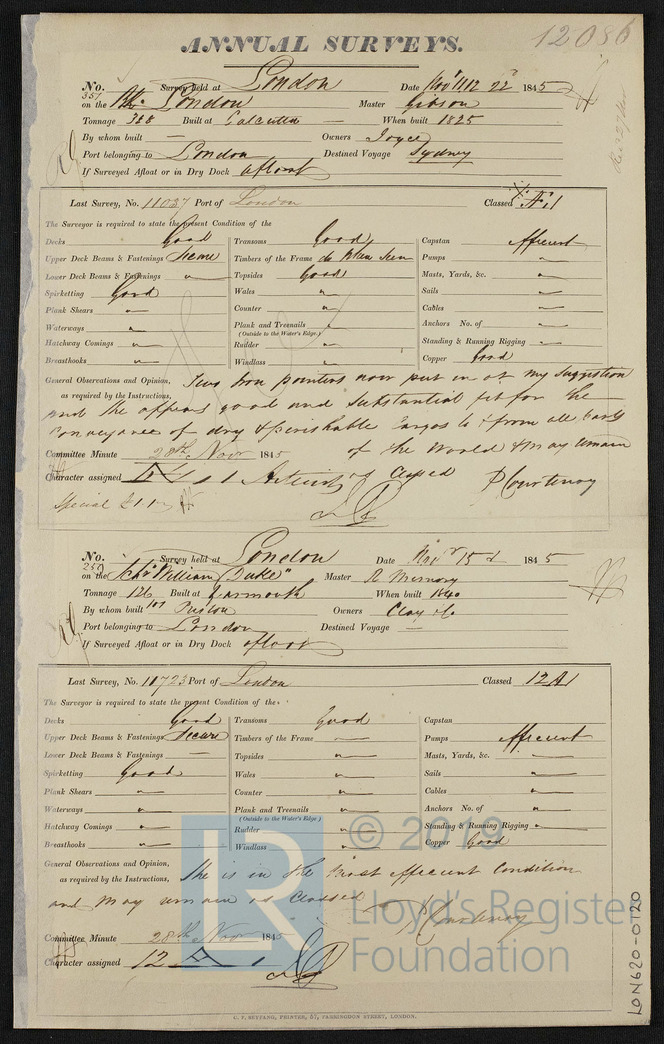 12086
ANNUAL SURVEYS.
No. 351 Survey held at London Date Novr 11, 12 22d 1845
on the Bk London Master Gibson
Tonnage 388 Built at Calcutta — When built 1825
By whom built — Owners Joyce
Port belonging to London Destined Voyage Sydney
If Surveyed Afloat or in Dry Dock afloat
Last Survey, No. 11037 Port of London Classed Æ1
The Surveyor is required to state the present Condition of the
Decks Good Transoms Good Capstan Efficient
Upper Deck Beams & Fastenings Secure Timbers of the Frame do When seen Pumps "
Lower Deck Beams & Fastenings " Topsides Good Masts, Yards, &c. "
Spirketting Good Wales " Sails "
Plank Shears " Counter " Cables "
Waterways " Plank and Treenails " Anchors No. of "
(Outside to the Water's Edge.)
Hatchway Comings " Rudder " Standing & Running Rigging "
Breasthooks " Windlass " Copper Good
General Observations and Opinion, Two Iron pointers now put in at my suggestion
as required by the Instructions, and she appears good and substantial fit for the
conveyance of dry & perishable Cargos to & from all parts
of the World & may remain
Committee Minute 28th Novr 1845
as Classed P Courtenay
Character assigned Æ 1
Special £1.1
No. 259 Survey held at London Date Novr 15d 1845
on the Schr William "Duke" Master R
Tonnage 126 Built at Yarmouth When built 1840
By whom built Preston Owners Clay & Co.
Port belonging to London Destined Voyage —
If Surveyed Afloat or in Dry Dock afloat
Last Survey, No. 11723 Port of London Classed 12A1
The Surveyor is required to state the present Condition of the
Decks Good Transoms Good Capstan
Upper Deck Beams & Fastenings Secure Timbers of the Frame — Pumps Efficient
Lower Deck Beams & Fastenings — Topsides " Masts, Yards, &c. "
Spirketting Good Wales " Sails "
Plank Shears " Counter " Cables "
Waterways " Plank and Treenails " Anchors No. of "
(Outside to the Water's Edge)
Hatchway Comings " Rudder " Standing & Running Rigging "
Breasthooks " Windlass " Copper Good
General Observations and Opinion, She is in the most efficient Condition
as required by the Instructions, and may remain as Classed
P Courtenay
Committee Minute 28th Novr 1845
Character assigned 12 A 1
C. F. SEYFANG, PRINTER, 57, FARRINGDON STREET, LONDON.
LON620-0120
LR
© 2019
Lloyd's Register
Foundation